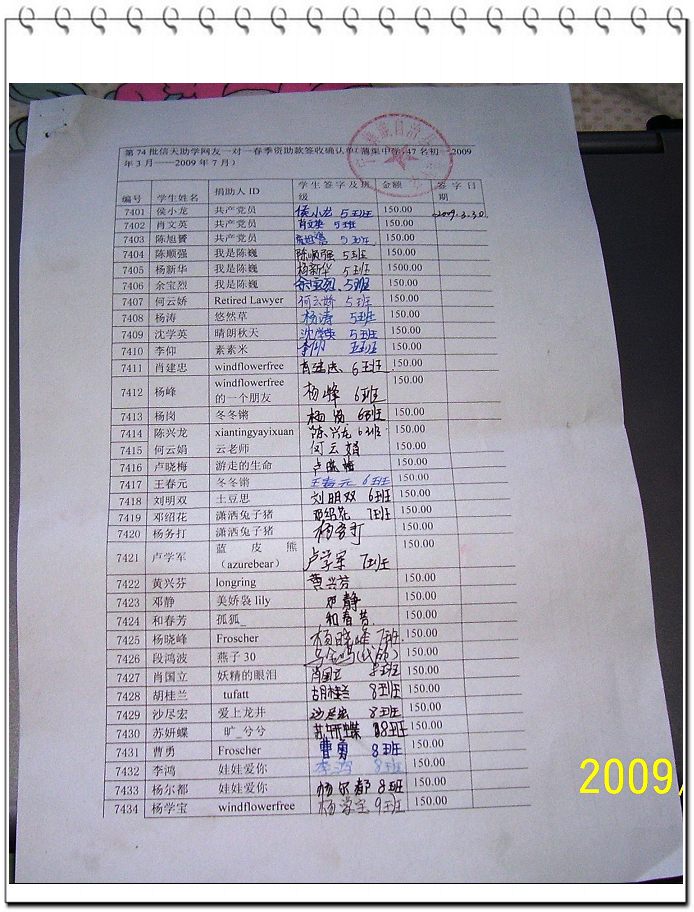 第74批信天助学网友一对一春季资助款签收确认单(蒲缥中学 47名初一2009
年3月——2009年7月)
编号 学生姓名 捐助人ID 学生签字及班级 金额 签字日期
7401 侯小龙 共产党员 侯小龙 5班 150.00 2009.3.30.
7402 肖文英 共产党员 肖文英 5班 150.00
7403 陈旭 共产党员 5班 150.00
7404 陈顺强 我是陈巍 陈顺强 5班 150.00
7405 杨新华 我是陈巍 杨新华 5班 1500.00
7406 余宝烈 我是陈巍 余宝烈 5班 150.00
7407 何云娇 Retired Lawyer 何云娇 5班 150.00
7408 杨涛 悠然草 杨涛 5班 150.00
7409 沈学英 晴朗秋天 沈学英 5班 150.00
7410 李仰 素素米 李仰 五班 150.00
7411 肖建忠 windflowerfree 肖建忠 6班 150.00
7412 杨峰 windflowerfree的一个朋友 杨峰 6班 150.00
7413 杨岗 冬冬锵 杨岗 6班 150.00
7414 陈兴龙 xiantingyayixuan 陈兴龙 6班 150.00
7415 何云娟 云老师 何云娟 150.00
7416 卢晓梅 游走的生命 卢晓梅 150.00
7417 王春元 冬冬锵 王春元 6班 150.00
7418 刘明双 土豆思 刘明双 6班 150.00
7419 邓绍花 潇洒兔子猪 邓绍花 7班 150.00
7420 杨务打 潇洒兔子猪 杨务打 150.00
7421 卢学军 蓝皮熊(azurebear) 卢学军 7班 150.00
7422 黄兴芬 longring 黄兴芬 150.00
7423 邓静 美娇袅lily 邓静 150.00
7424 和春芳 孤狐_ 和春芳 150.00
7425 杨晓峰 Froscher 杨晓峰 7班 150.00
7426 段鸿波 燕子30 (代领) 150.00
7427 肖国立 妖精的眼泪 肖国立 8班 150.00
7428 胡桂兰 tufatt 胡桂兰 8班 150.00
7429 沙尽宏 爱上龙井 沙尽宏 8班 150.00
7430 苏妍蝶 旷兮兮 苏妍蝶 8班 150.00
7431 曹勇 Froscher 曹勇 8班 150.00
7432 李鸿 娃娃爱你 李鸿 8班 150.00
7433 杨尔都 娃娃爱你 杨尔都 8班 150.00
7434 杨学宝 windflowerfree 杨学宝 9班 150.00
2009